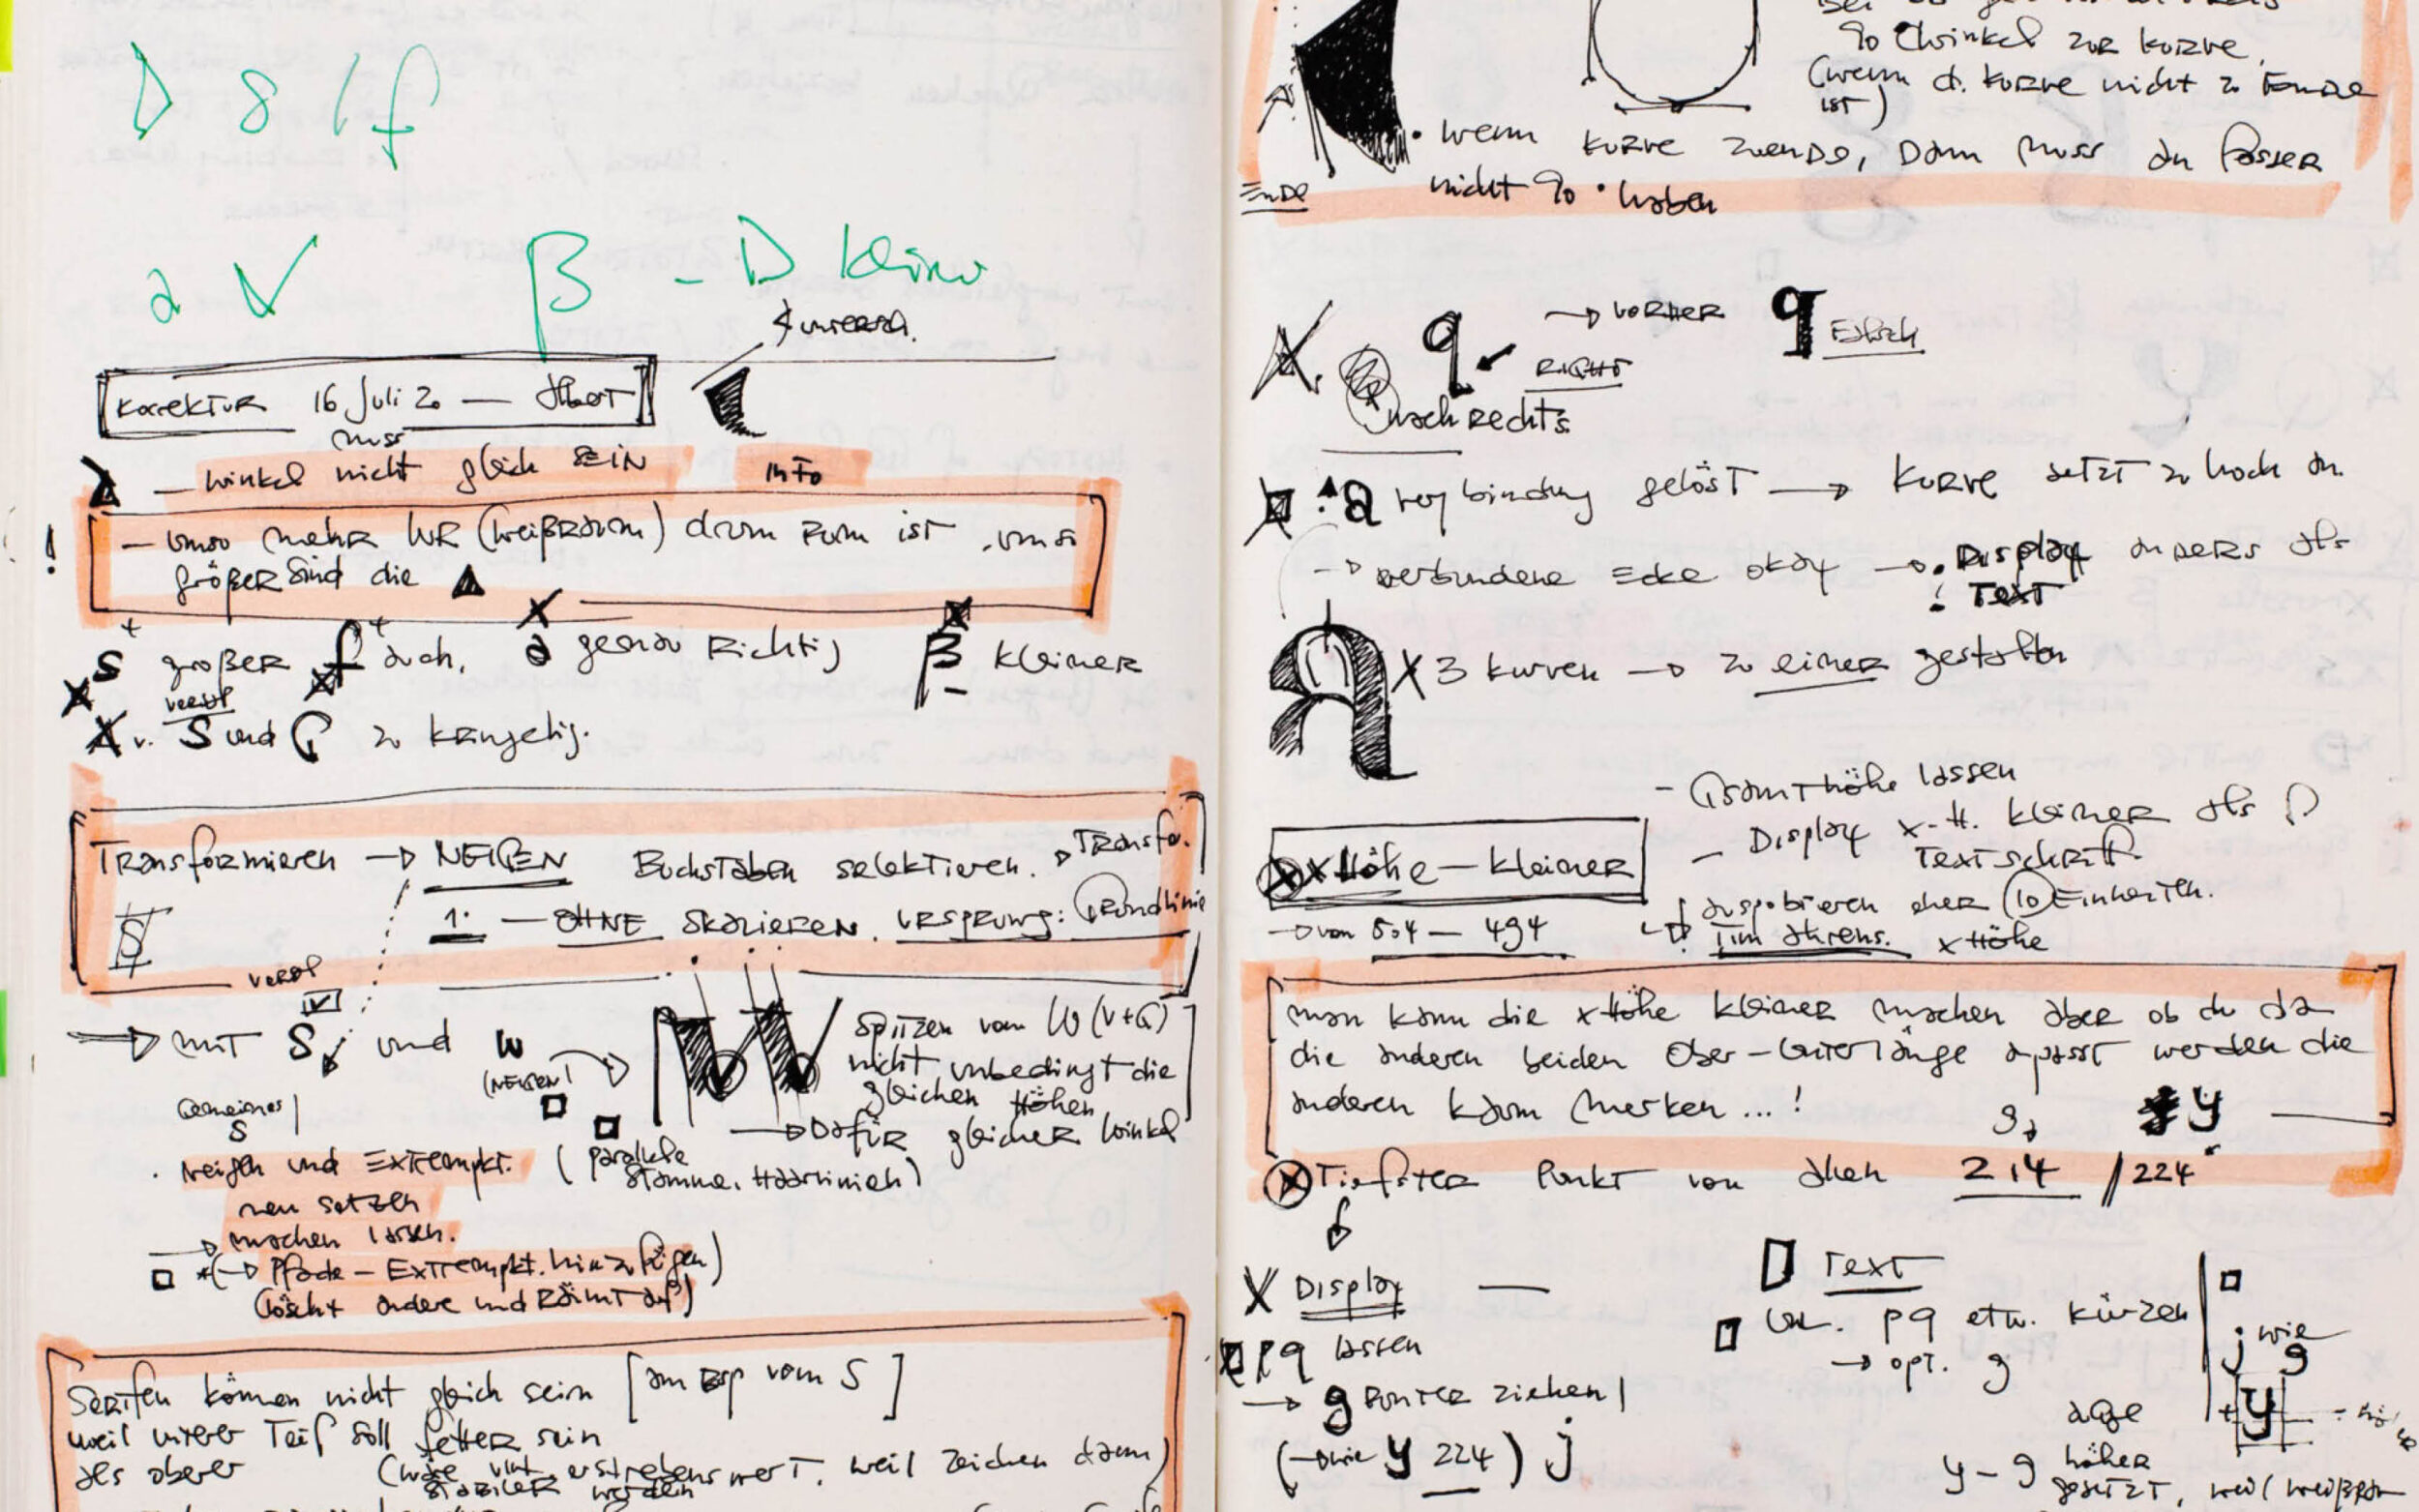 D 8 / f
a V β - D klein
Korrektur 16 Juli 20 — Albert
muss
— Winkel nicht gleich SEIN INFO
! — umso mehr WR (Weißraum) drum rum ist, umso
größer sind die ▲
s größer f auch. a genau Richtig β kleiner
v. S und G zu kringelig.
Transformieren → NEIGEN Buchstaben selektieren. → Transfo.
1. — OHNE skalieren. Ursprung: Grundlinie
S
→ mit S und W
(NEIGEN)
Spitzen vom W (V+G)
nicht unbedingt die
gleichen Höhen
→ Dafür gleicher Winkel
(parallele
Stämme, Haarlinien)
S
· Neigen und Extrempkt.
neu setzen
→ machen lassen.
*(→ Pfade — Extrempkt. hinzufügen)
(löscht andere und räumt auf)
Serifen können nicht gleich sein [am Bsp vom S]
weil unterer Teil soll fetter sein
als oberer
erstrebenswert, weil Zeichen dann)
stabiler werden
90° Winkel zur Kurve.
(wenn d. Kurve nicht zu Ende
ist)
• wenn Kurve zuende, dann muss an
Ende
nicht 90° haben
q → vorher q Falsch
RIGHT
nach rechts
a Verbindung gelöst → Kurve setzt zu hoch an.
→ verbundene Ecke okay → Display anders als
! Text
X 3 Kurven → zu einer gestalten
- Gesamthöhe lassen
- Display x-H. kleiner als
Textschrift.
x Höhe — kleiner
→ von 504 — 494
ausprobieren eher 10 Einheiten.
Tim Ahrens. x Höhe
man kann die x Höhe kleiner machen aber ob du da
die anderen beiden Ober-Unterlänge anpasst werden die
anderen kaum merken ...!
g, y
Tiefster Punkt von allen 214 / 224
X Display —
Text
pq lassen
pq etw. kürzen
→ opt. g
j wie
g
→ g runter ziehen
y
(→ wie y 224) j
y – g höher
gesetzt, weil Weißraum